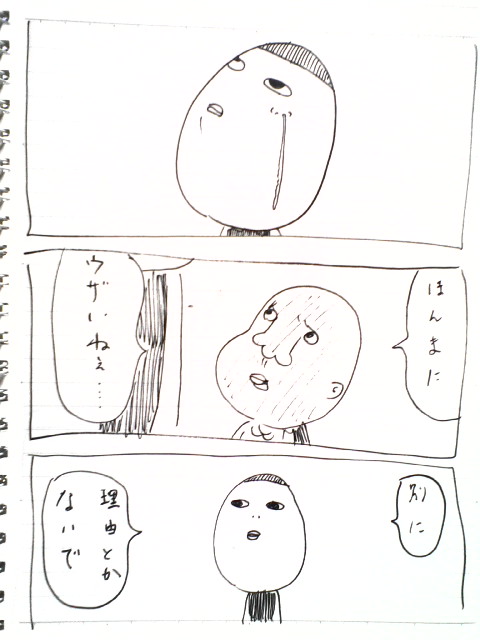 ほんまに
ウザいねぇ……
別に
理由とか
ないで